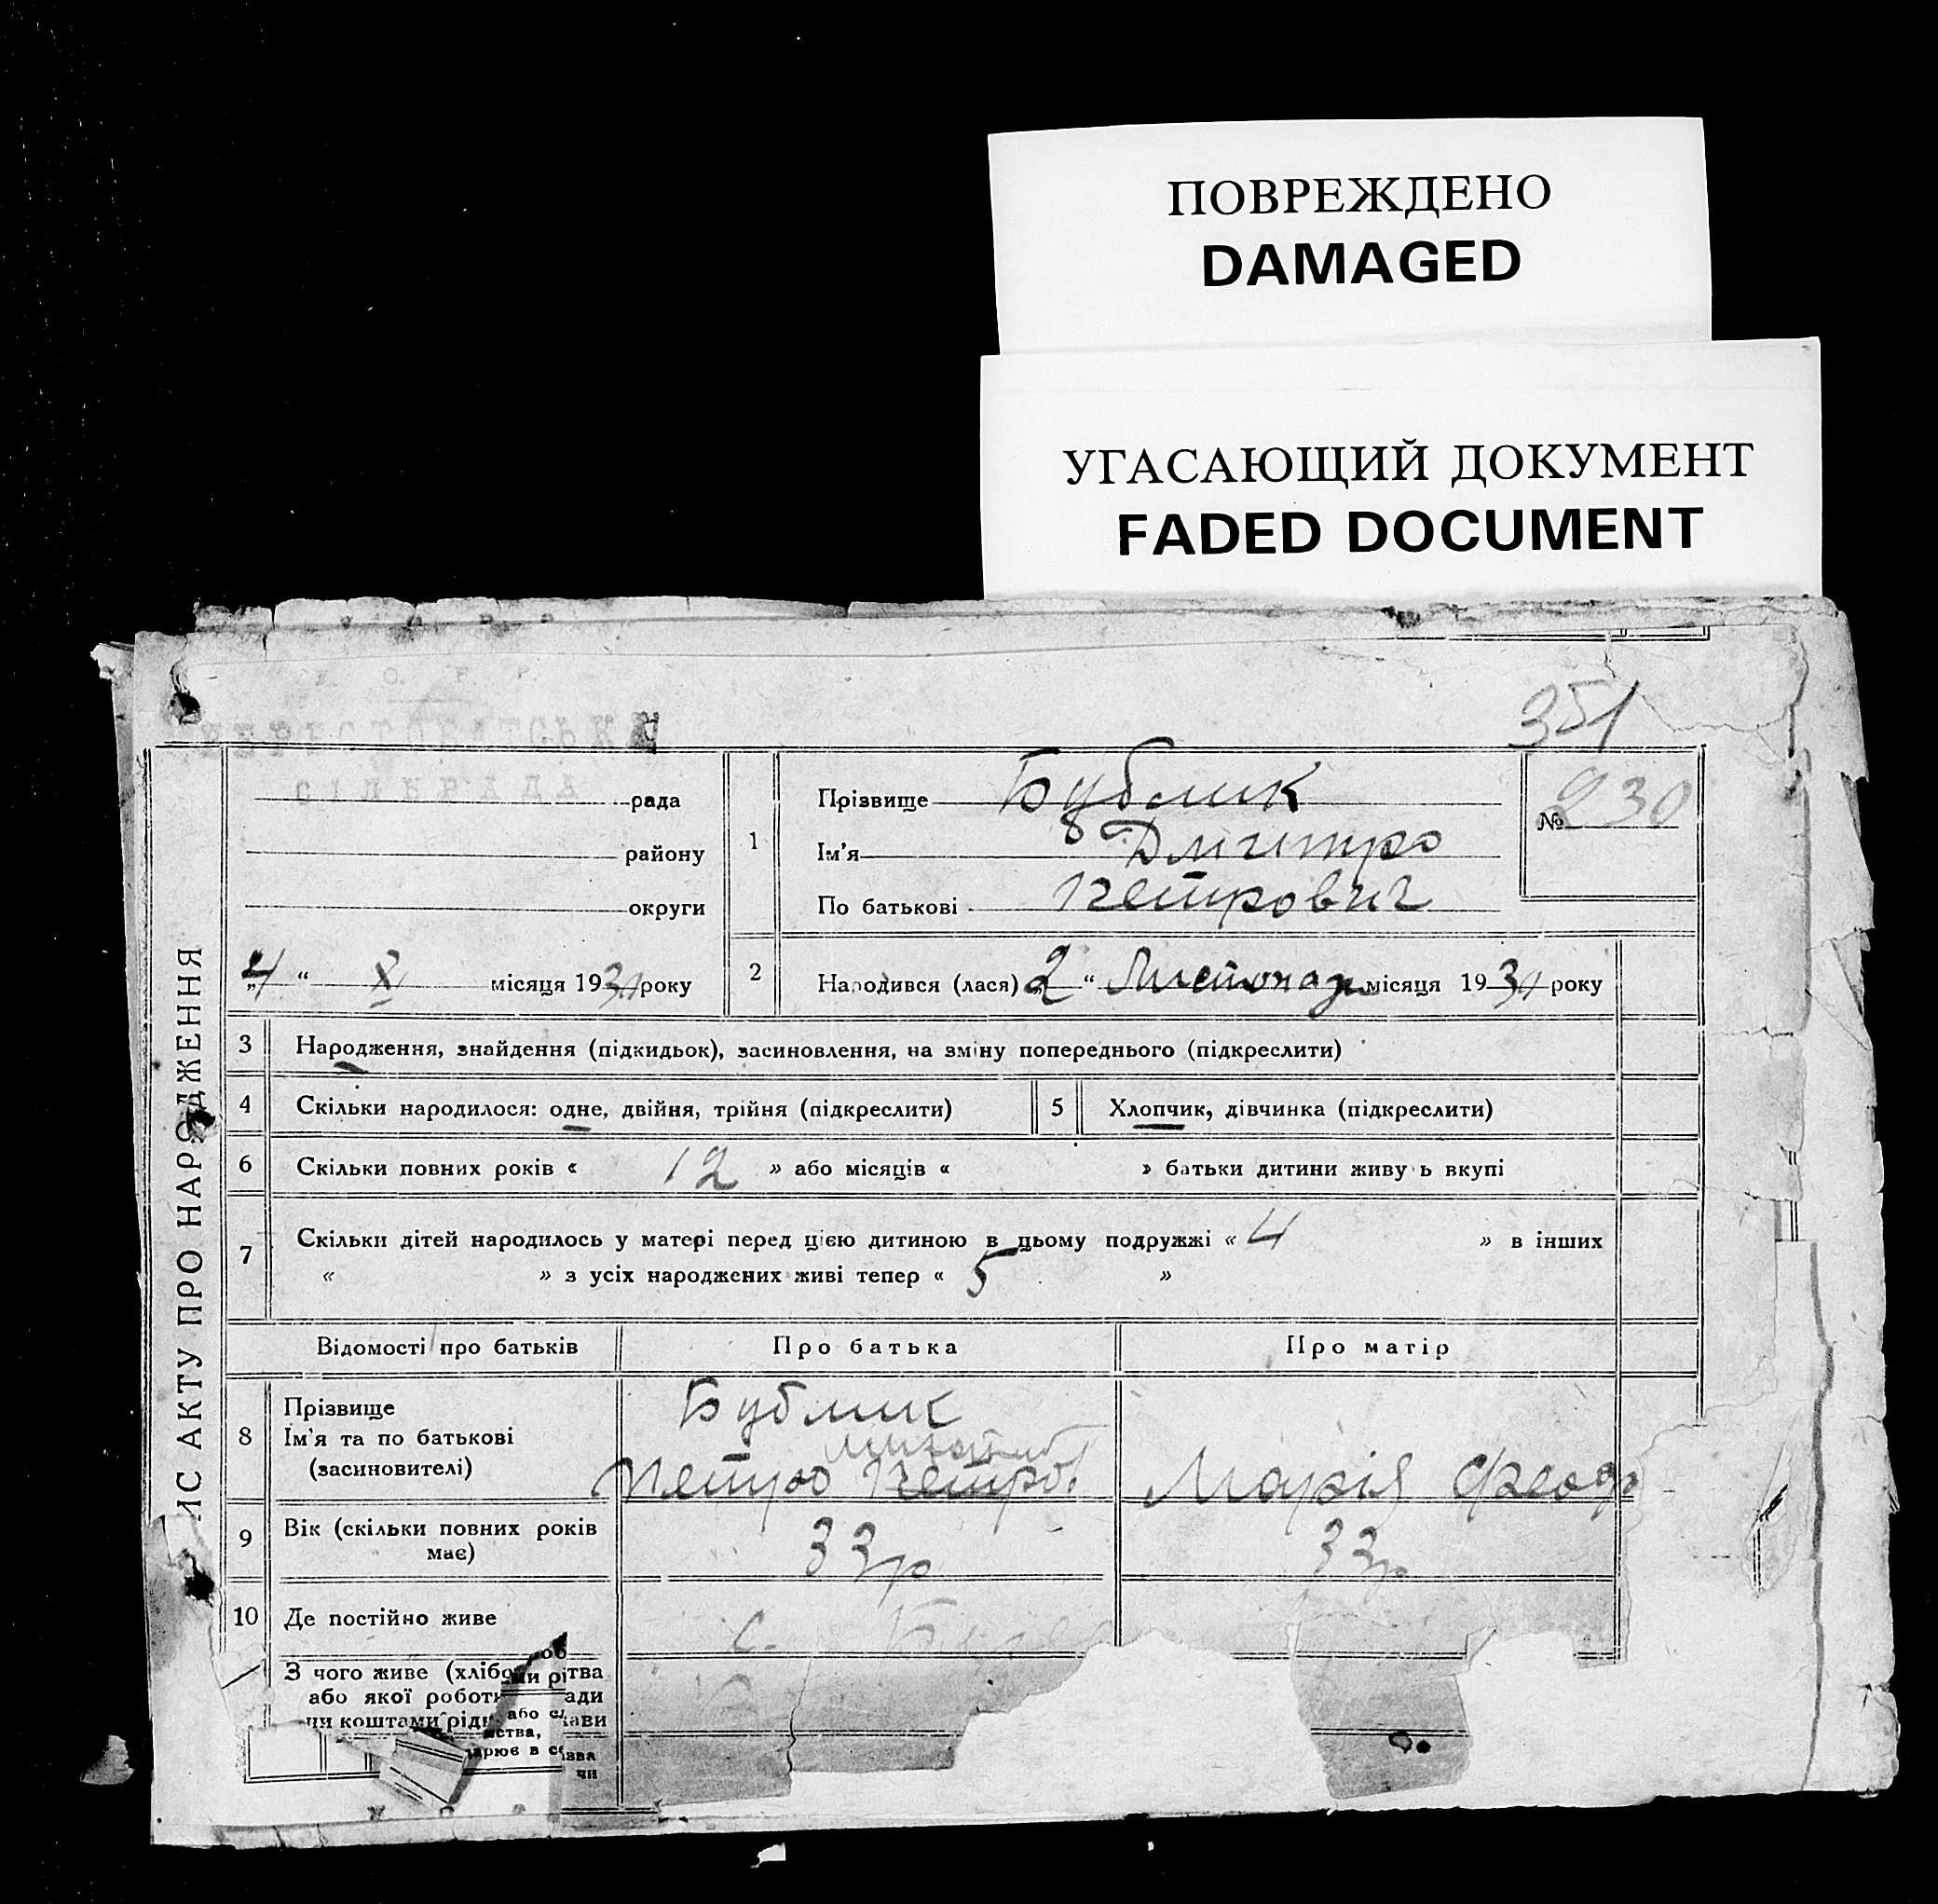 ПОВРЕЖДЕНО
DAMAGED
УГАСАЮЩИЙ ДОКУМЕНТ
FADED DOCUMENT
351
СІЛЬРАДА
рада
району
округи
№ 230
1
Прізвище Бублик
Ім'я Дмитро
По батькові Петрович
4 " X місяця 193 року
2
Народився (лася) „2 " Листопад місяця 193 року
ИС АКТУ ПРО НАРОДЖЕННЯ
3 Народження, знайдення (підкидьок), засиновлення, на зміну попереднього (підкреслити)
4 Скільки народилося: одне, двійня, трійня (підкреслити)
5 Хлопчик, дівчинка (підкреслити)
6 Скільки повних років « 12 » або місяців « » батьки дитини живу ь вкупі
7 Скільки дітей народилось у матері перед цією дитиною в цьому подружжі « 4 » в інших
« » з усіх народжених живі тепер « 5 »
Відомості про батьків
Про батька
Про матір
8 Прізвище
Ім'я та по батькові
(засиновителі)
Бублик
Петро Петро
Марія Феод
9 Вік (скільки повних років
має)
33р
33р
10 Де постійно живе
с.
З чого живе (хлібо рітва
або якої робот ади
чи коштами рідн ави
або сл
ства,
арює в с
чи